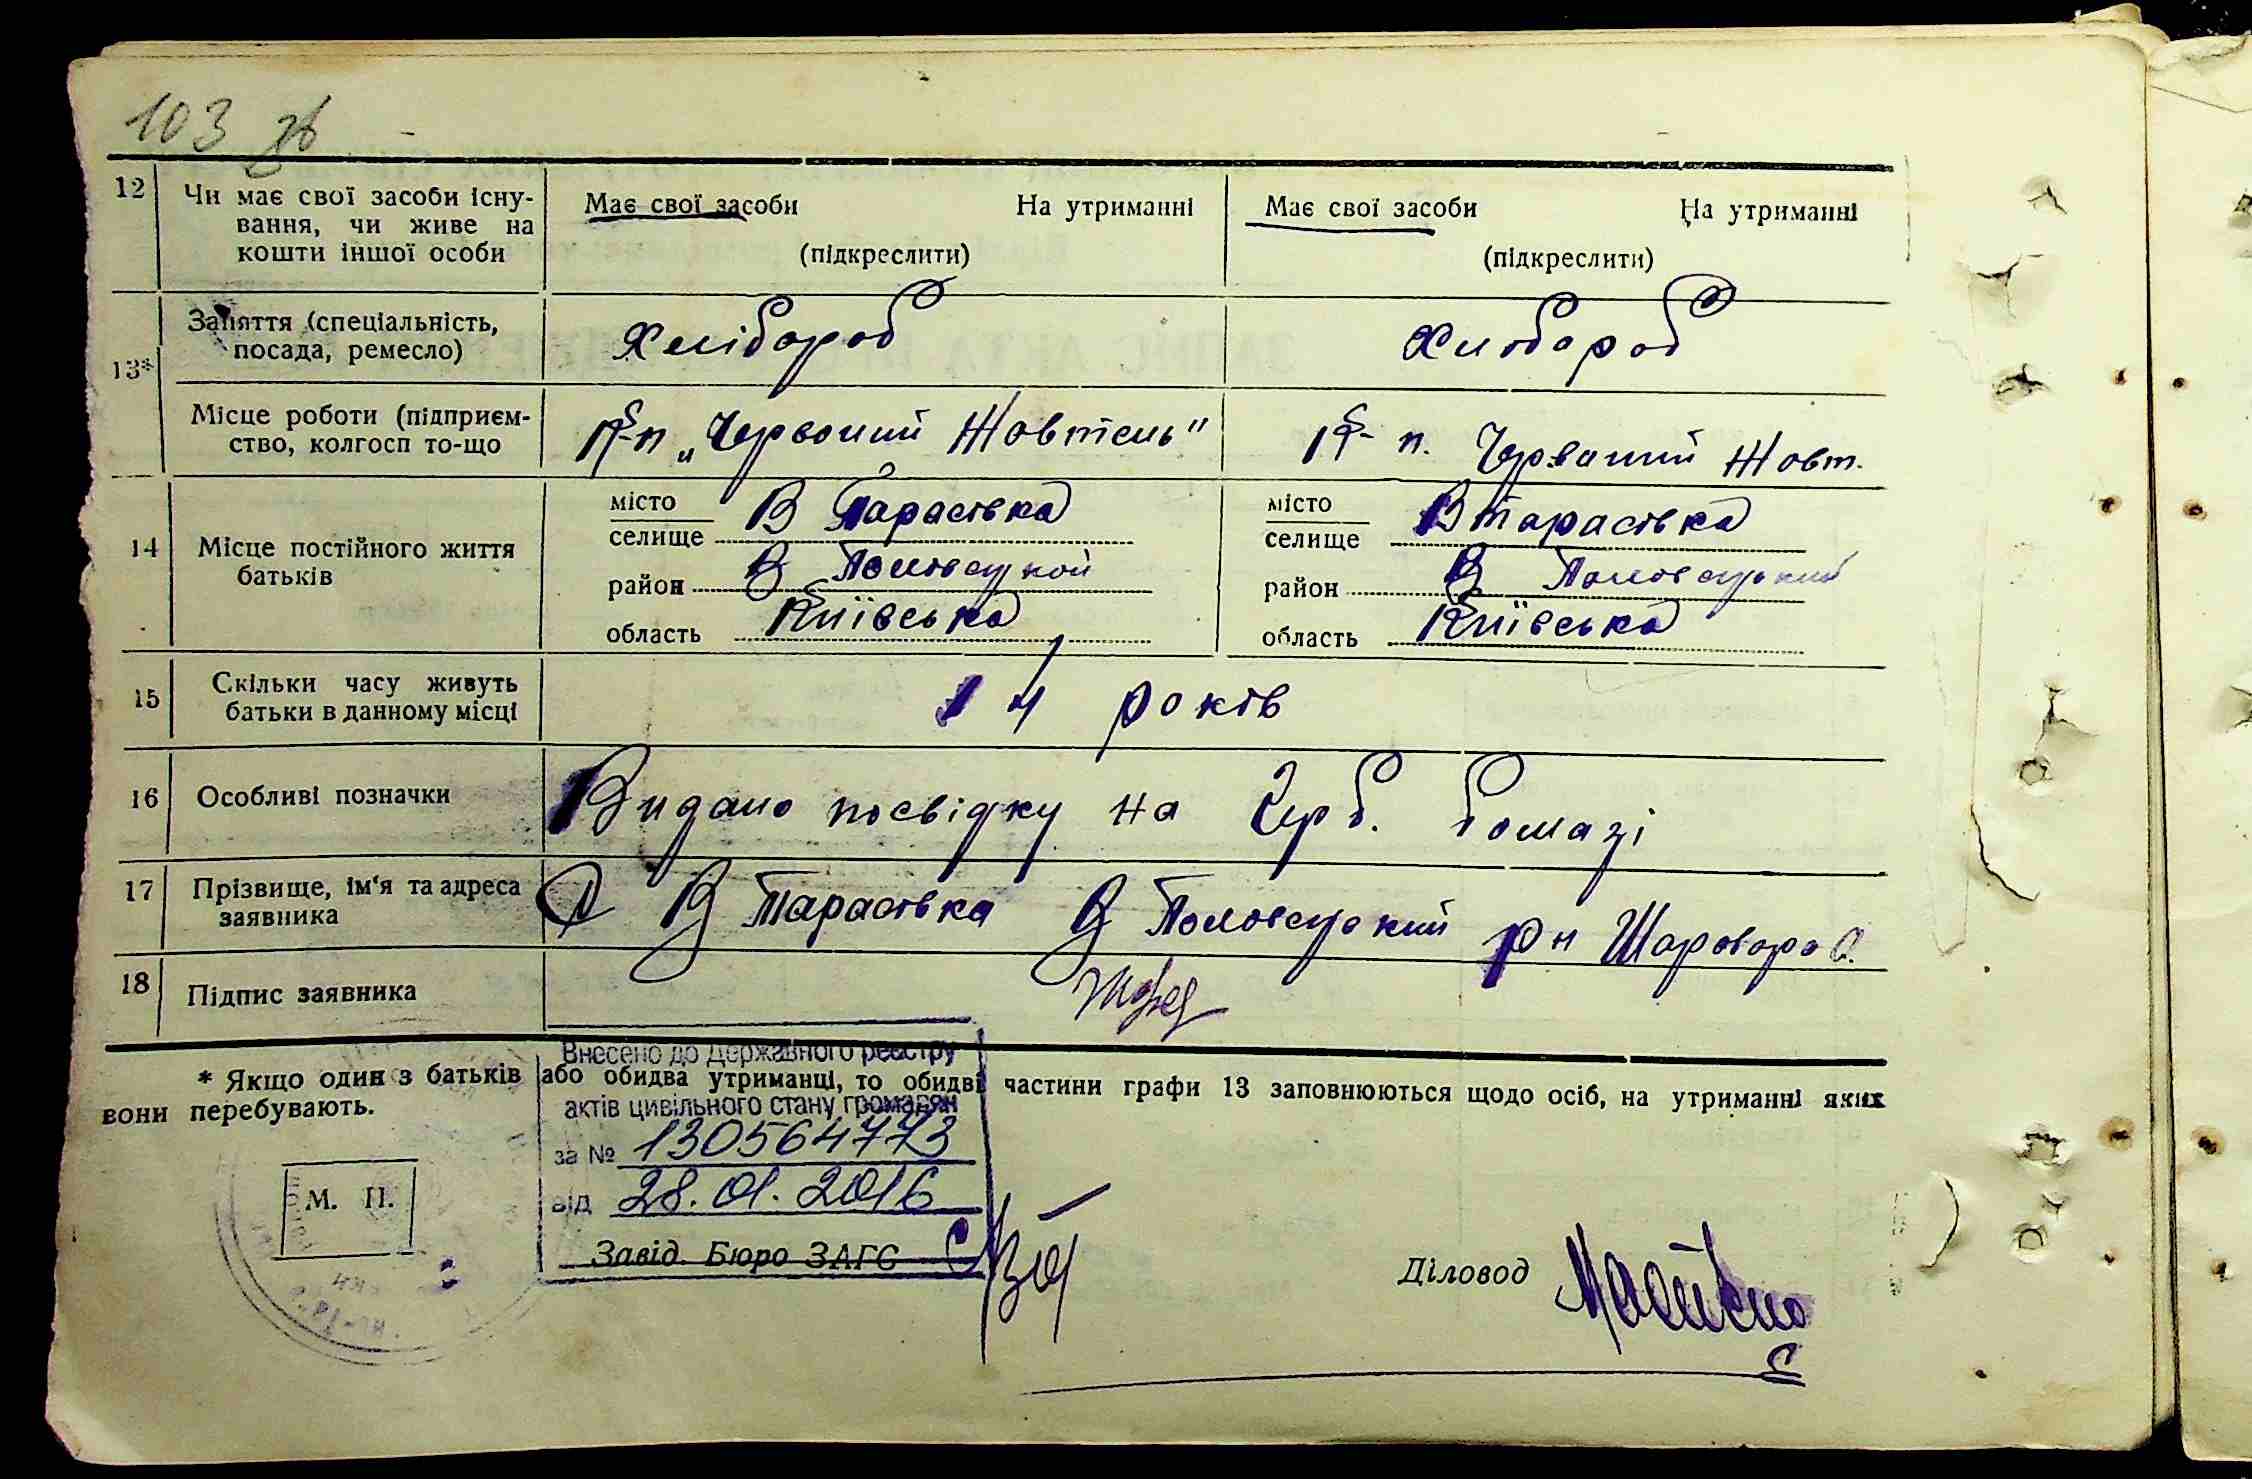 103 зв
12 Чи має свої засоби існу-
вання, чи живе на
кошти іншої особи
Має свої засоби На утриманні
(підкреслити)
Має свої засоби На утриманні
(підкреслити)
13*
Заняття (спеціальність,
посада, ремесло)
Хлібороб
Хлібороб
Місце роботи (підприєм-
ство, колгосп то-що
к-п „Червоний Жовтень"
к-п. Червоний Жовт.
14 Місце постійного життя
батьків
місто
селище В Тарасівка
район В Половецкой
область Київська
місто
селище В Тарасівка
район В Половецький
область Київська
15 Скільки часу живуть
батьки в данному місці
14 років
16 Особливі позначки
Видано посвідку на Герб. бомазі
17 Прізвище, ім'я та адреса
заявника
С В Тарасівка В Половецький рн Шаровара О.
18 Підпис заявника
* Якщо один з батьків або обидва утриманці, то обидві частини графи 13 заповнюються щодо осіб, на утриманні яких
вони перебувають.
Внесено до Державного реєстру
актів цивільного стану громадян
за № 130564773
від 28.01.2016
М. П.
Завід. Бюро ЗАГС
Діловод